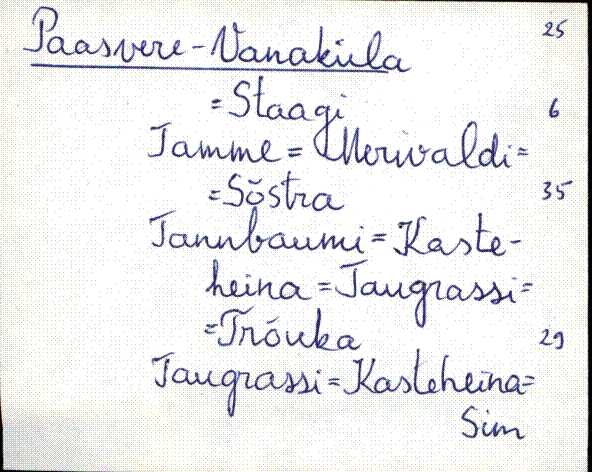 Paasvere-Vanaküla 25
=Staagi 6
Tamme = Merivaldi =
=Sõstra 35
Tannbaumi = Kaste-
heina = Taugrassi =
=Trõuka 29
Taugrassi = Kasteheina =
Sim